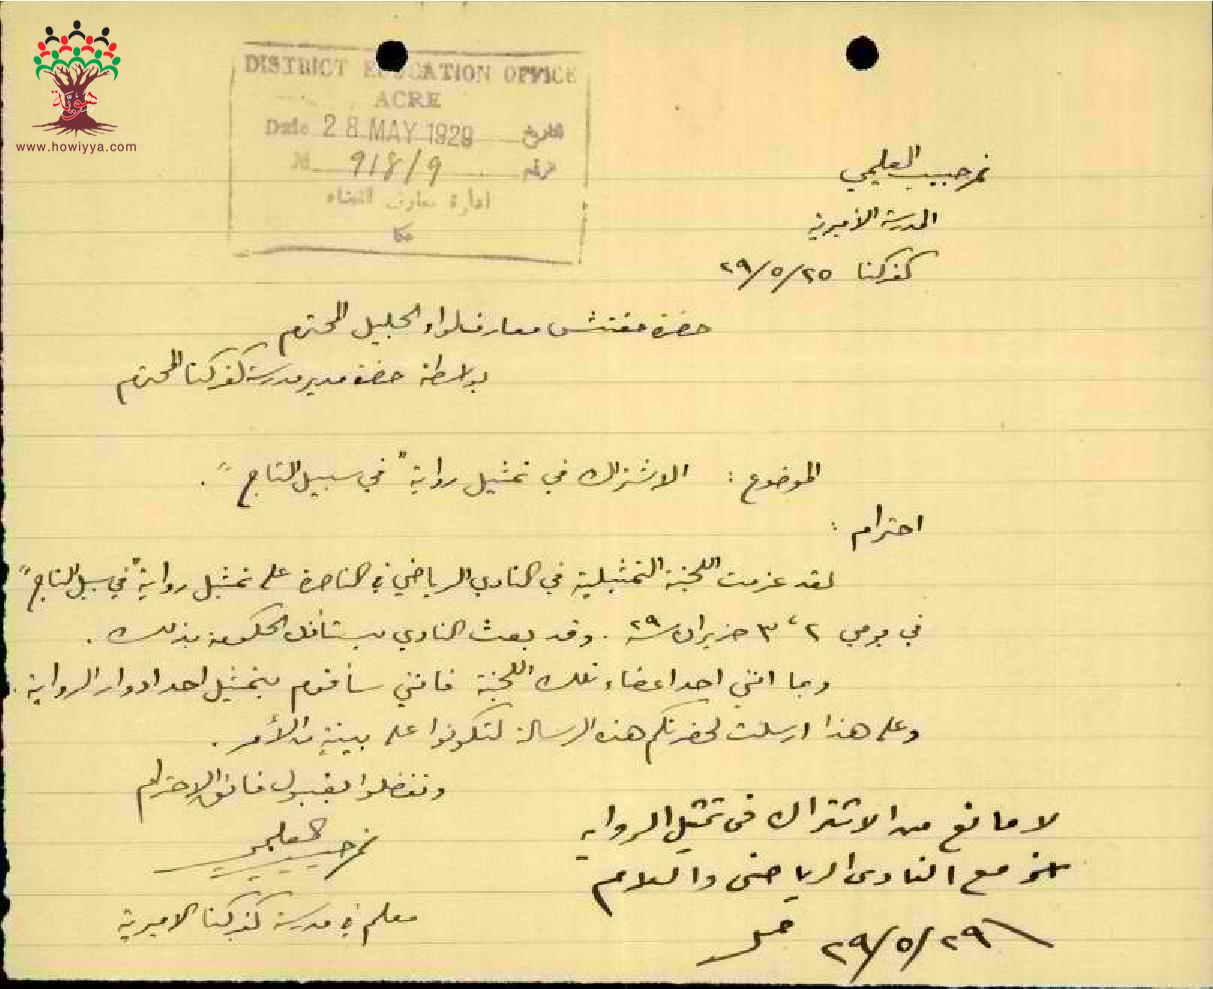 هوية
www.howiyya.com
DISTRICT EDUCATION OFFICE
ACRE
Date 28 MAY 1929 التاريخ
№ 918/9 نمرة
ادارة معارف القضاء
عكا
نمر حبيب العليمي
المدرسة الأميرية
كفركنا ٢٥/٥/٢٩
حضرة مفتش معارف لواء الجليل المحترم
بواسطة حضرة مدير مدرسة كفركنا المحترم
الموضوع : الاشتراك في تمثيل رواية "في سبيل التاج".
احترام :
لقد عزمت اللجنة التمثيلية في النادي الرياضي في الناصرة على تمثيل رواية "في سبيل التاج"
في يومي ٢ ، ٣ حزيران سنة ٢٩ . وقد بعث النادي يستأذن الحكومة بذلك .
وبما انني احد اعضاء تلك اللجنة فانني سأقوم بتمثيل احد ادوار الرواية .
وعلى هذا ارسلت لحضرتكم هذه الرسالة لتكونوا على بينة من الأمر .
وتفضلوا بقبول فائق الاحترام
نمر حبيب العليمي
معلم في مدرسة كفركنا الاميرية
لا مانع من الاشتراك في تمثيل الرواية
مع النادي الرياضي والسلام
٢٩/٥/٢٩